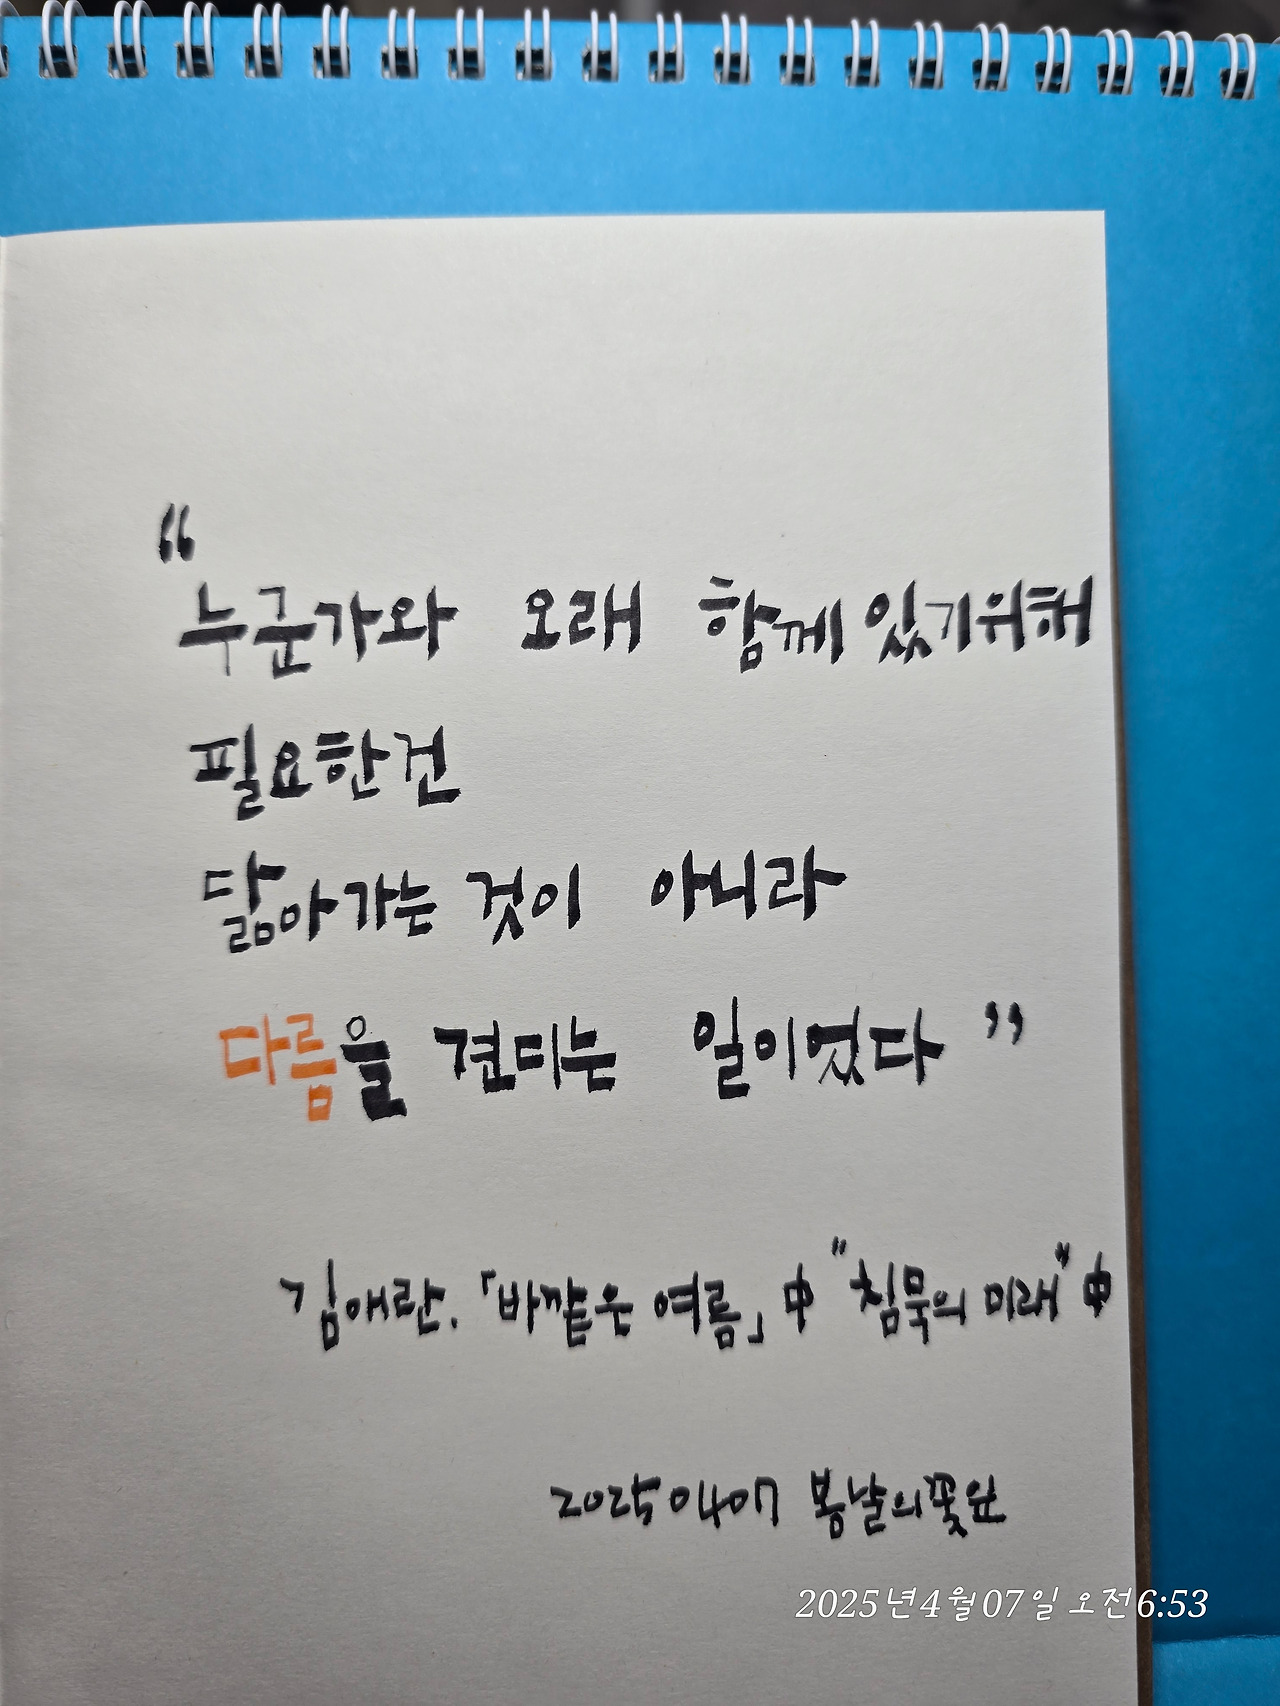 “
누군가와 오래 함께 있기위해
필요한건
닮아가는 것이 아니라
다름을 견디는 일이었다 ”
김애란. 「바깥은 여름」 中 "침묵의 미래" 中
20250407 봄날의꽃
2025년4월07일 오전6:53